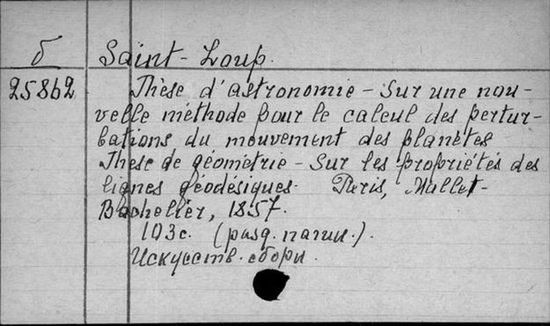 б Saint-Loup.
25862 Thèse d'astronomie – Sur une nou-
velle méthode pour le calcul des pertur-
bations du mouvement des planètes
Thèse de géométrie – Sur les propriétés des
lignes géodésiques. Paris, Mallet-
Bachelier, 1857.
103 с. (разд. пагин.).
Искусств. сборн.